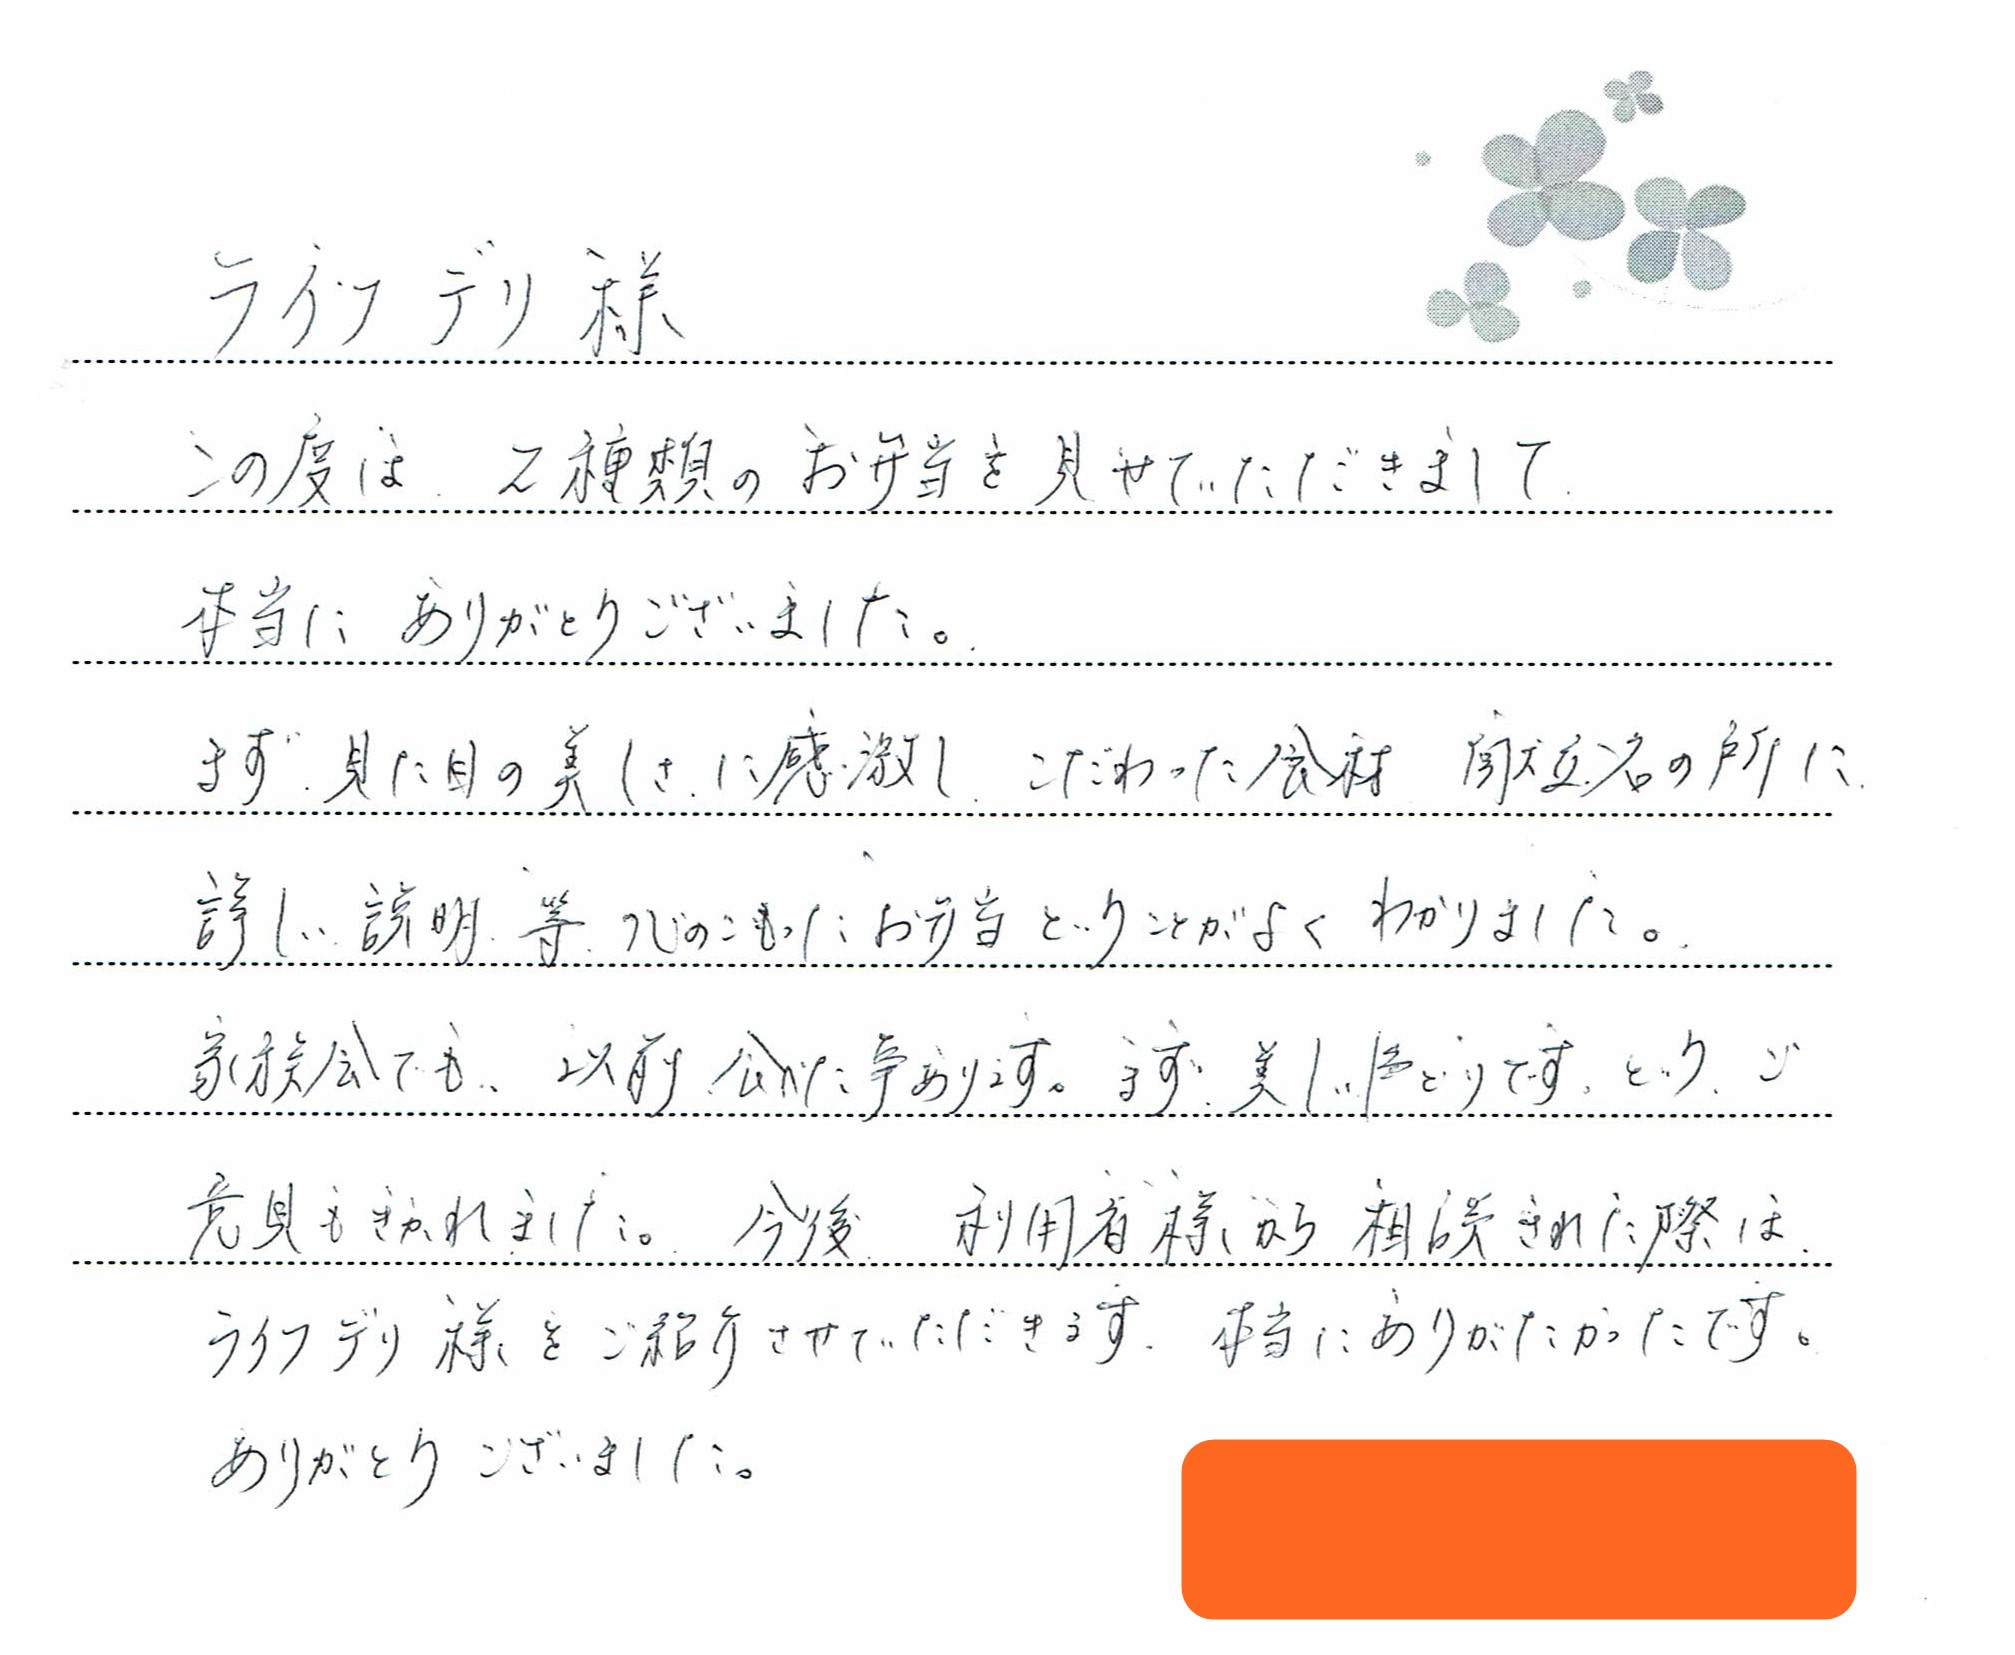 ライフデリ様
この度は、2種類のお弁当を見せていただきまして、
本当に ありがとうございました。
まず、見た目の美しさに感激し、こだわった食材、献立名の所に、
詳しい説明、等、心のこもったお弁当ということがよくわかりました。
家族会でも、以前、食べた事あります。まず、美しい色どりです、という、ご
意見もきかれました。今後、利用者様から相談された際は、
ライフデリ様をご紹介させていただきます。本当にありがたかったです。
ありがとうございました。